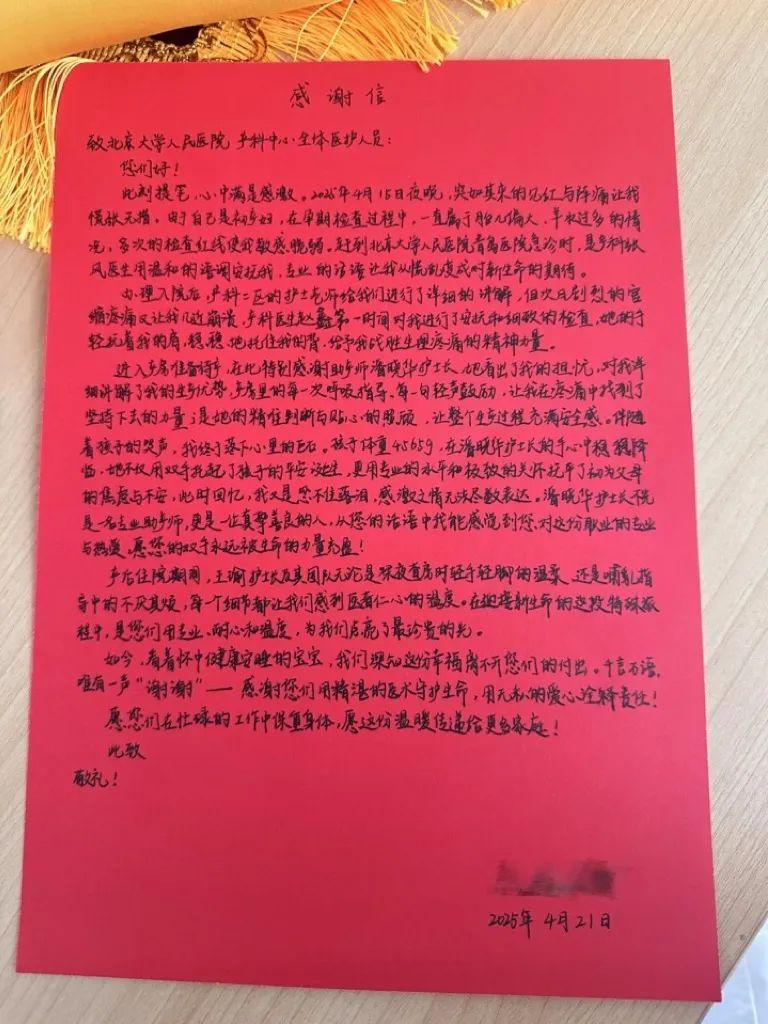 感谢信
致北京大学人民医院 产科中心全体医护人员：
您们好！
此刻提笔，心中满是感激。2025年4月15日夜晚，突如其来的见红与阵痛让我
慌张无措。由于自己是初产妇，在孕期检查过程中，一直属于胎儿偏大、羊水过多的情
况，多次的检查红线使我敏感脆弱。赶到北京大学人民医院青岛医院急诊时，是产科张
风医生用温和的语调安抚我，专业的话语让我从慌乱变成对新生命的期待。
办理入院后，产科二区的护士老师给我们进行了详细的讲解，但次日剧烈的宫
缩疼痛又让我几近崩溃，产科医生赵 第一时间对我进行了安抚和细致的检查，她的手
轻抚着我的肩，稳稳地托住我的背，给予我战胜生理疼痛的精神力量。
进入产房准备待产，在此特别感谢助产师潘晓华护士长，她看出了我的担忧，对我详
细讲解了我的生产优势，产房里的每一次呼吸指导，每一句轻声鼓励，让我在疼痛中找到了
坚持下去的力量，是她的精准判断与贴心的照顾，让整个生产过程充满安全感。伴随
着孩子的哭声，我终于落下心里的巨石。孩子体重4565g，在潘晓华护士长的手心中稳稳降
临，她不仅用双手托起了孩子的平安诞生，更用专业的水平和极致的关怀抚平了初为父母
的焦虑与不安，此时回忆，我又是忍不住落泪，感激之情无法尽数表达。潘晓华护士长不仅
是一名专业助产师，更是一位真挚善良的人，从您的话语中我能感觉到您、对这份职业的专业
与热爱。愿您的双手永远被生命的力量充盈！
产后住院期间，王瑜护士长及其团队无论是深夜查房时轻手轻脚的温柔，还是哺乳指
导中的不厌其烦，每个细节都让我们感到医者仁心的温度。在迎接新生命的这段特殊旅
程中，是您们用专业、耐心和温度，为我们点亮了最珍贵的光。
如今，看着怀中健康安睡的宝宝，我们深知这份幸福离不开您们的付出。千言万语，
唯有一声“谢谢”——感谢您们用精湛的医术守护生命，用无私的爱心诠释责任！
愿您们在忙碌的工作中保重身体，愿这份温暖传递给更多家庭！
此致
敬礼！
2025年 4月21日